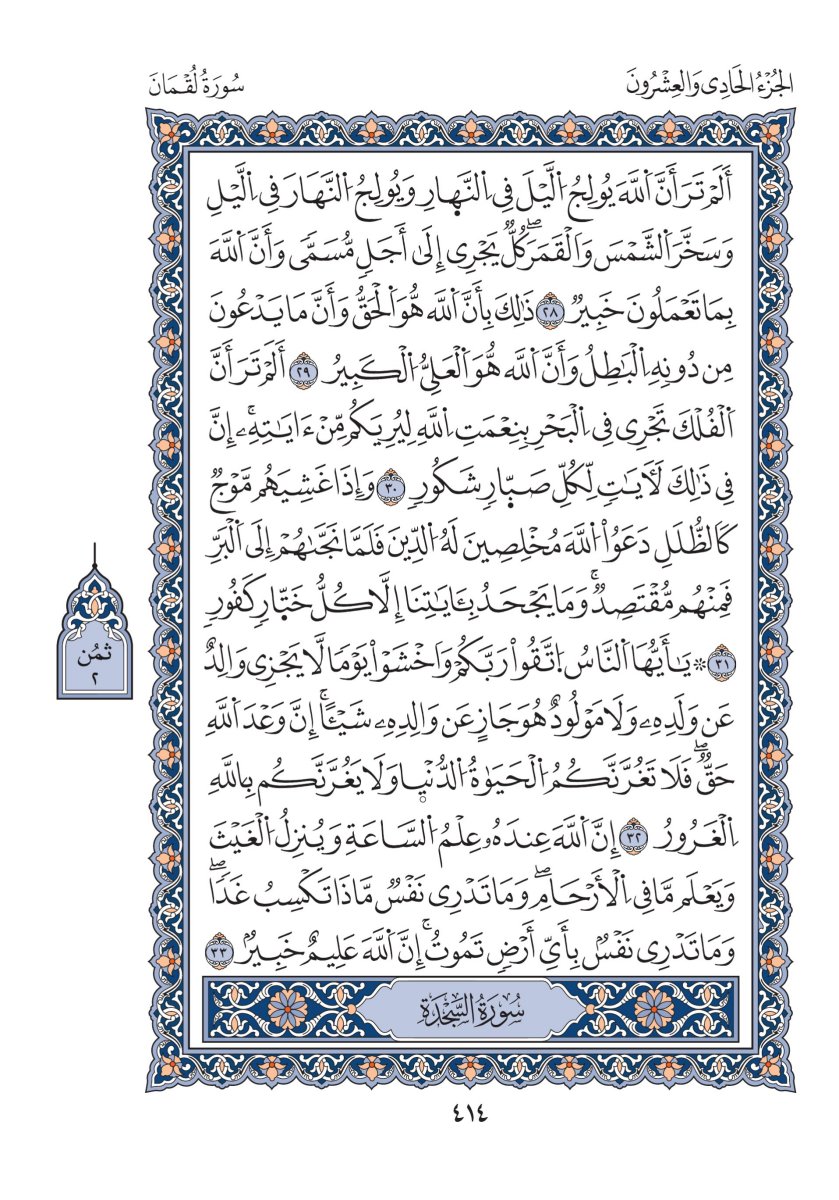 الجُزْءُ الحَادِى وَالعِشْرُونَ
سُورَةُ لُقْمَانَ
أَلَمْ تَرَ أَنَّ اَ۬للَّهَ يُولِجُ اُ۬لَّيْلَ فِى اِ۬لنَّه۪ارِ وَيُولِجُ اُ۬لنَّهَارَ فِى اِ۬لَّيْلِ
وَسَخَّرَ اَ۬لشَّمْسَ وَالْقَمَرَۖ كُلٌّ يَجْرِى إِلَىٰ أَجَلٍ مُّسَمًّى وَأَنَّ اَ۬للَّهَ
بِمَا تَعْمَلُونَ خَبِيرٌ ٢٨ ذَٰلِكَ بِأَنَّ اَ۬للَّه هُّوَ اَ۬لْحَقُّ وَأَنَّ مَا يَدْعُونَ
مِن دُونِهِ اِ۬لْبَٰطِلُ وَأَنَّ اَ۬للَّه هُّوَ اَ۬لْعَلِىُّ اُ۬لْكَبِيرُ ٢٩ أَلَمْ تَرَ أَنَّ
اَ۬لْفُلْكَ تَجْرِى فِى اِ۬لْبَحْرِ بِنِعْمَتِ اِ۬للَّهِ لِيُرِيَكُم مِّنْ ءَايَٰتِهِۦٓۚ إِنَّ
فِى ذَٰلِكَ لَأٓيَٰتٍ لِّكُلِّ صَبّ۪ارٍ شَكُورٍ ٣٠ وَإِذَا غَشِيَهُم مَّوْجٌ
كَالظُّلَلِ دَعَوُاْ اُ۬للَّهَ مُخْلِصِينَ لَهُ اُ۬لدِّينَ فَلَمَّا نَجَّىٰهُمْ إِلَى اَ۬لْبَرِّ
فَمِنْهُم مُّقْتَصِدٌۚ وَمَا يَجْحَدُ بِـَٔايَٰتِنَا إِلَّا كُلُّ خَتّ۪ارٍ كَفُورٍ
٣١ ۞ يَٰأَيُّهَا اَ۬لنَّاسُ اُ۪تَّقُواْ رَبَّكُمْ وَاخْشَوْاْ يَوْمًا لَّا يَجْزِى وَالِدٌ
عَن وَلَدِهِۦ وَلَا مَوْلُودٌ هُوَ جَازٍ عَن وَالِدِهِۦ شَيْـًٔاۚ إِنَّ وَعْدَ اَ۬للَّهِ
حَقٌّۖ فَلَا تَغُرَّنَّكُمُ اُ۬لْحَيَوٰةُ اُ۬لدُّنْي۪ا وَلَا يَغُرَّنَّكُم بِاللَّهِ
اِ۬لْغَرُورُ ٣٢ إِنَّ اَ۬للَّهَ عِندَهُۥ عِلْمُ اُ۬لسَّاعَةِ وَيُنزِلُ اُ۬لْغَيْثَ
وَيَعْلَم مَّا فِى اِ۬لْأَرْحَامِۖ وَمَا تَدْرِى نَفْسٌ مَّاذَا تَكْسِبُ غَدًاۖ
وَمَا تَدْرِى نَفْسٌ بِأَىِّ أَرْضٍ تَمُوتُۚ إِنَّ اَ۬للَّهَ عَلِيمٌ خَبِيرٌ ٣٣
ثمُن
٢
سُورَةُ السَّجْدَةِ
٤١٤